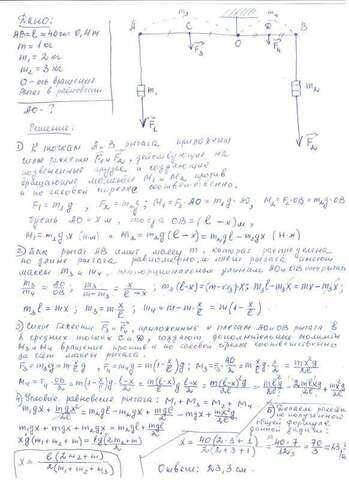 Дано:
AB = l = 40 см = 0,4 м
m = 1 кг
m₁ = 2 кг
m₂ = 3 кг
O - ось вращения
Рычаг в равновесии
AO - ?
A C O D B
m₃ m₄
F₃ F₄
m₁ m₂
F₁ F₂
Решение:
1) К точкам A и B рычага приложены
силы тяжести F₁ и F₂, действующие на
подвешенные грузы и создающие
вращающие моменты M₁ и M₂ против
и по часовой стрелке соответственно.
F₁ = m₁g, F₂ = m₂g; M₁ = F₁·AO = m₁g·AO, M₂ = F₂·OB = m₂g·OB
Пусть AO = x м, тогда OB = (l - x) м,
M₁ = m₁gx (Н·м) и M₂ = m₂g(l - x) = m₂gl - m₂gx (Н·м)
2) Рычаг AB имеет массу m, которая распределена
по длине рычага равномерно, и плечи рычага имеют
массы m₃ и m₄, пропорциональные длинам AO и OB
m₃/m₄ = AO/OB; m₃/(m-m₃) = x/(l-x); m₃(l-x) = (m-m₃)x; m₃l - m₃x = mx - m₃x;
m₃l = mx; m₃ = m x/l; m₄ = m - m x/l = m(1 - x/l)
3) Силы тяжести F₃ и F₄, приложенные к плечам AO и OB рычага в
их средних точках C и D, создают дополнительные моменты
M₃ и M₄ вращения против и по часовой стрелке соответственно
за счёт массы рычага:
F₃ = m₃g = m x/l g; F₄ = m₄g = m(1 - x/l)g; M₃ = F₃·AO/2 = m x/l g·x/2 = mx²g/2l
M₄ = F₄·OB/2 = m(1 - x/l)g·(l-x)/2 = m(l-x)/l g·(l-x)/2 = m(l-x)²g/2l = ml²g/2l - 2mlxg/2l + mx²g/2l
4) Условие равновесия рычага: M₁ + M₃ = M₂ + M₄
m₁gx + mgx²/2l = m₂gl - m₂gx + mgl/2 - mgx + mgx²/2l
m₁gx + m₂gx + mgx = m₂gl + mgl/2
xg(m₁ + m₂ + m) = lg(2m₂ + m)/2
x = l(2m₂ + m)/2(m₁ + m₂ + m)
5) Делаем расчёт
по полученной
общей формуле
данной задачи:
x = 40(2·3 + 1)/2(2 + 3 + 1) = 40·7/12 = 70/3 = 23 1/3
Ответ: 23,3 см.